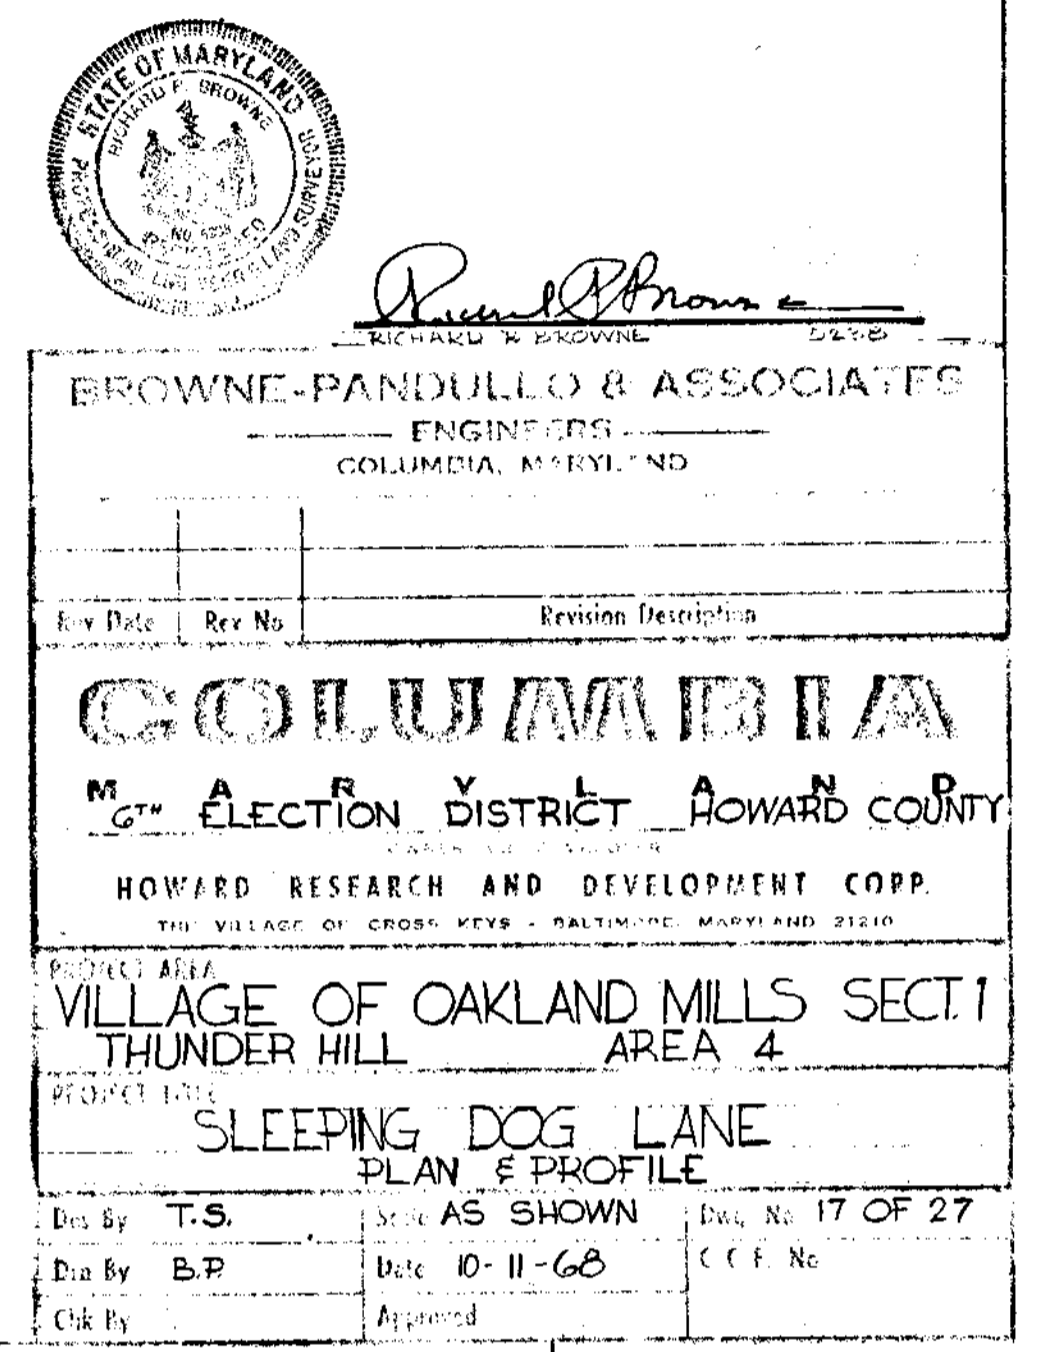 STATE OF MARYLAND
RICHARD P. BROWNE
PROFESSIONAL ENGINEER & LAND SURVEYOR
Richard P Browne
RICHARD P BROWNE
BROWNE-PANDULLO & ASSOCIATES
ENGINEERS
COLUMBIA, MARYLAND
Rev Date Rev No Revision Description
COLUMBIA
MARYLAND
6TH ELECTION DISTRICT HOWARD COUNTY
HOWARD RESEARCH AND DEVELOPMENT CORP.
THE VILLAGE OF CROSS KEYS - BALTIMORE, MARYLAND 21210
PROJECT AREA
VILLAGE OF OAKLAND MILLS SECT. 1
THUNDER HILL AREA 4
PROJECT TITLE
SLEEPING DOG LANE
PLAN & PROFILE
Des By T.S. Scale AS SHOWN Dwg. No 17 OF 27
Drn By B.P. Date 10-11-68 C C F. No
Chk By Approved